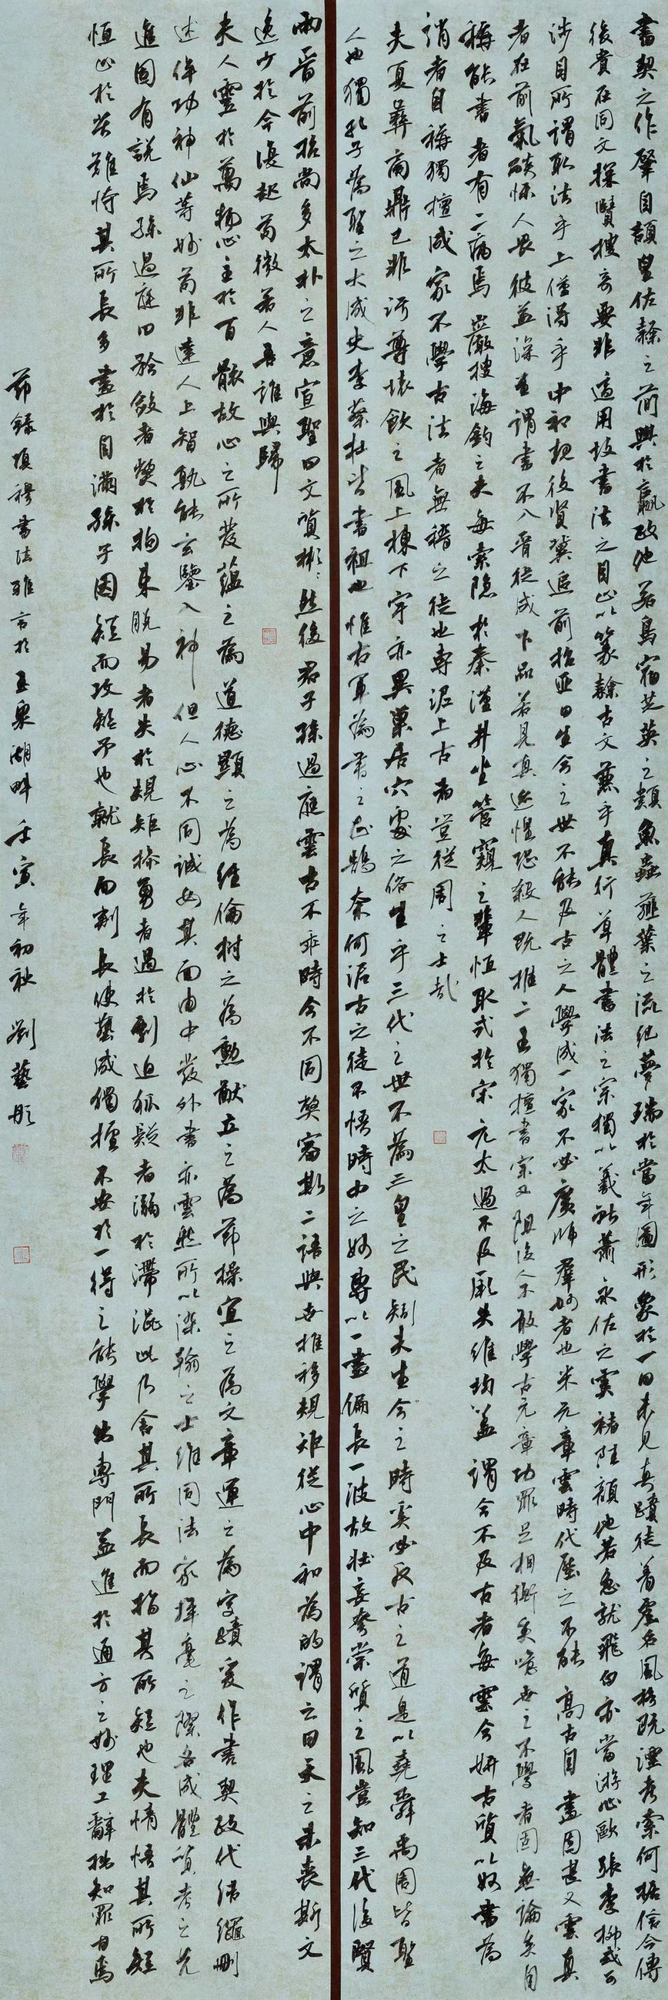 書契之作肇自頡皇佐隸之簡興於嬴政他若鳥宿芝英之類魚蟲薤葉之流紀夢瑞於當年圖形象於一日未見真蹟徒著虛名風格既湮考索何據信今傳
後貴在同文探賾搜奇要非適用故書法之目止以篆隸古文兼乎真行草體書法之宗獨以羲獻蕭永佐之虞褚陸顏他若急就飛白亦當游心歐張李柳或可
涉目所謂取法乎上僅得乎中初規後賢冀追前哲匪曰生今之世不能及古之人學成一家不必廣師群妙者也米元章雲時代壓之不能高古自畫固甚又雲真
者在前氣燄懾人畏彼益深至謂書不入晉徒成下品若見真跡惶恐殺人既推二王獨擅書宗又阻後人不敢學古元章功罪足相衡矣噫世之不學者固無論矣自
稱能書者有二病焉巖搜海釣之夫每索隱於秦漢井坐管窺之輩恆取式於宋元太過不及厥失維均蓋謂今不及古者每雲今妍古質以奴書為
誚者自稱獨擅成家不學古法者無稽之徒也專泥上古者豈從周之士哉
夫夏彝商鼎已非汙尊坏飲之風上棟下宇亦異巢居穴處之俗生乎三代之世不為三皇之民矧夫生今之時奚必反古之道是以堯舜禹周皆聖
人也獨孔子為聖之大成史李蔡杜皆書祖也惟右軍為書之正鵠奈何泥古之徒不悟時中之妙專以一畫偏長一波故壯妄誇崇質之風豈知三代後賢
兩晉前哲尚多太朴之意宣聖曰文質彬彬然後君子孫過庭雲古不乖時今不同弊審斯二語與世推移規矩從心中和為的謂之曰天之未喪斯文
逸少於今復起苟微若人吾誰與歸
夫人靈於萬物心主於百骸故心之所發蘊之為道德顯之為經綸樹之為勳猷立之為節操宣之為文章運之為字蹟爰作書契政代結繩刪
述侔功神仙等妙苟非達人上智孰能玄鑒入神但人心不同誠如其面由中發外書亦雲然所以染翰之士雖同法家揮毫之際各成體質考之先
進固有說焉孫過庭曰矜斂者弊於拘束脫易者失於規矩操勇者過於剽迫狐疑者溺於滯澀此乃舍其所長而指其所短也夫悟其所短
恆止於苦難恃其所長多畫於自滿孫子因短而攻短予也就長而刻長使藝成獨擅不安於一得之能學出專門益進於通方之妙理工辭拙知罪甘焉
節錄項穆書法雅言於玉泉湖畔壬寅年初秋劉藝彤